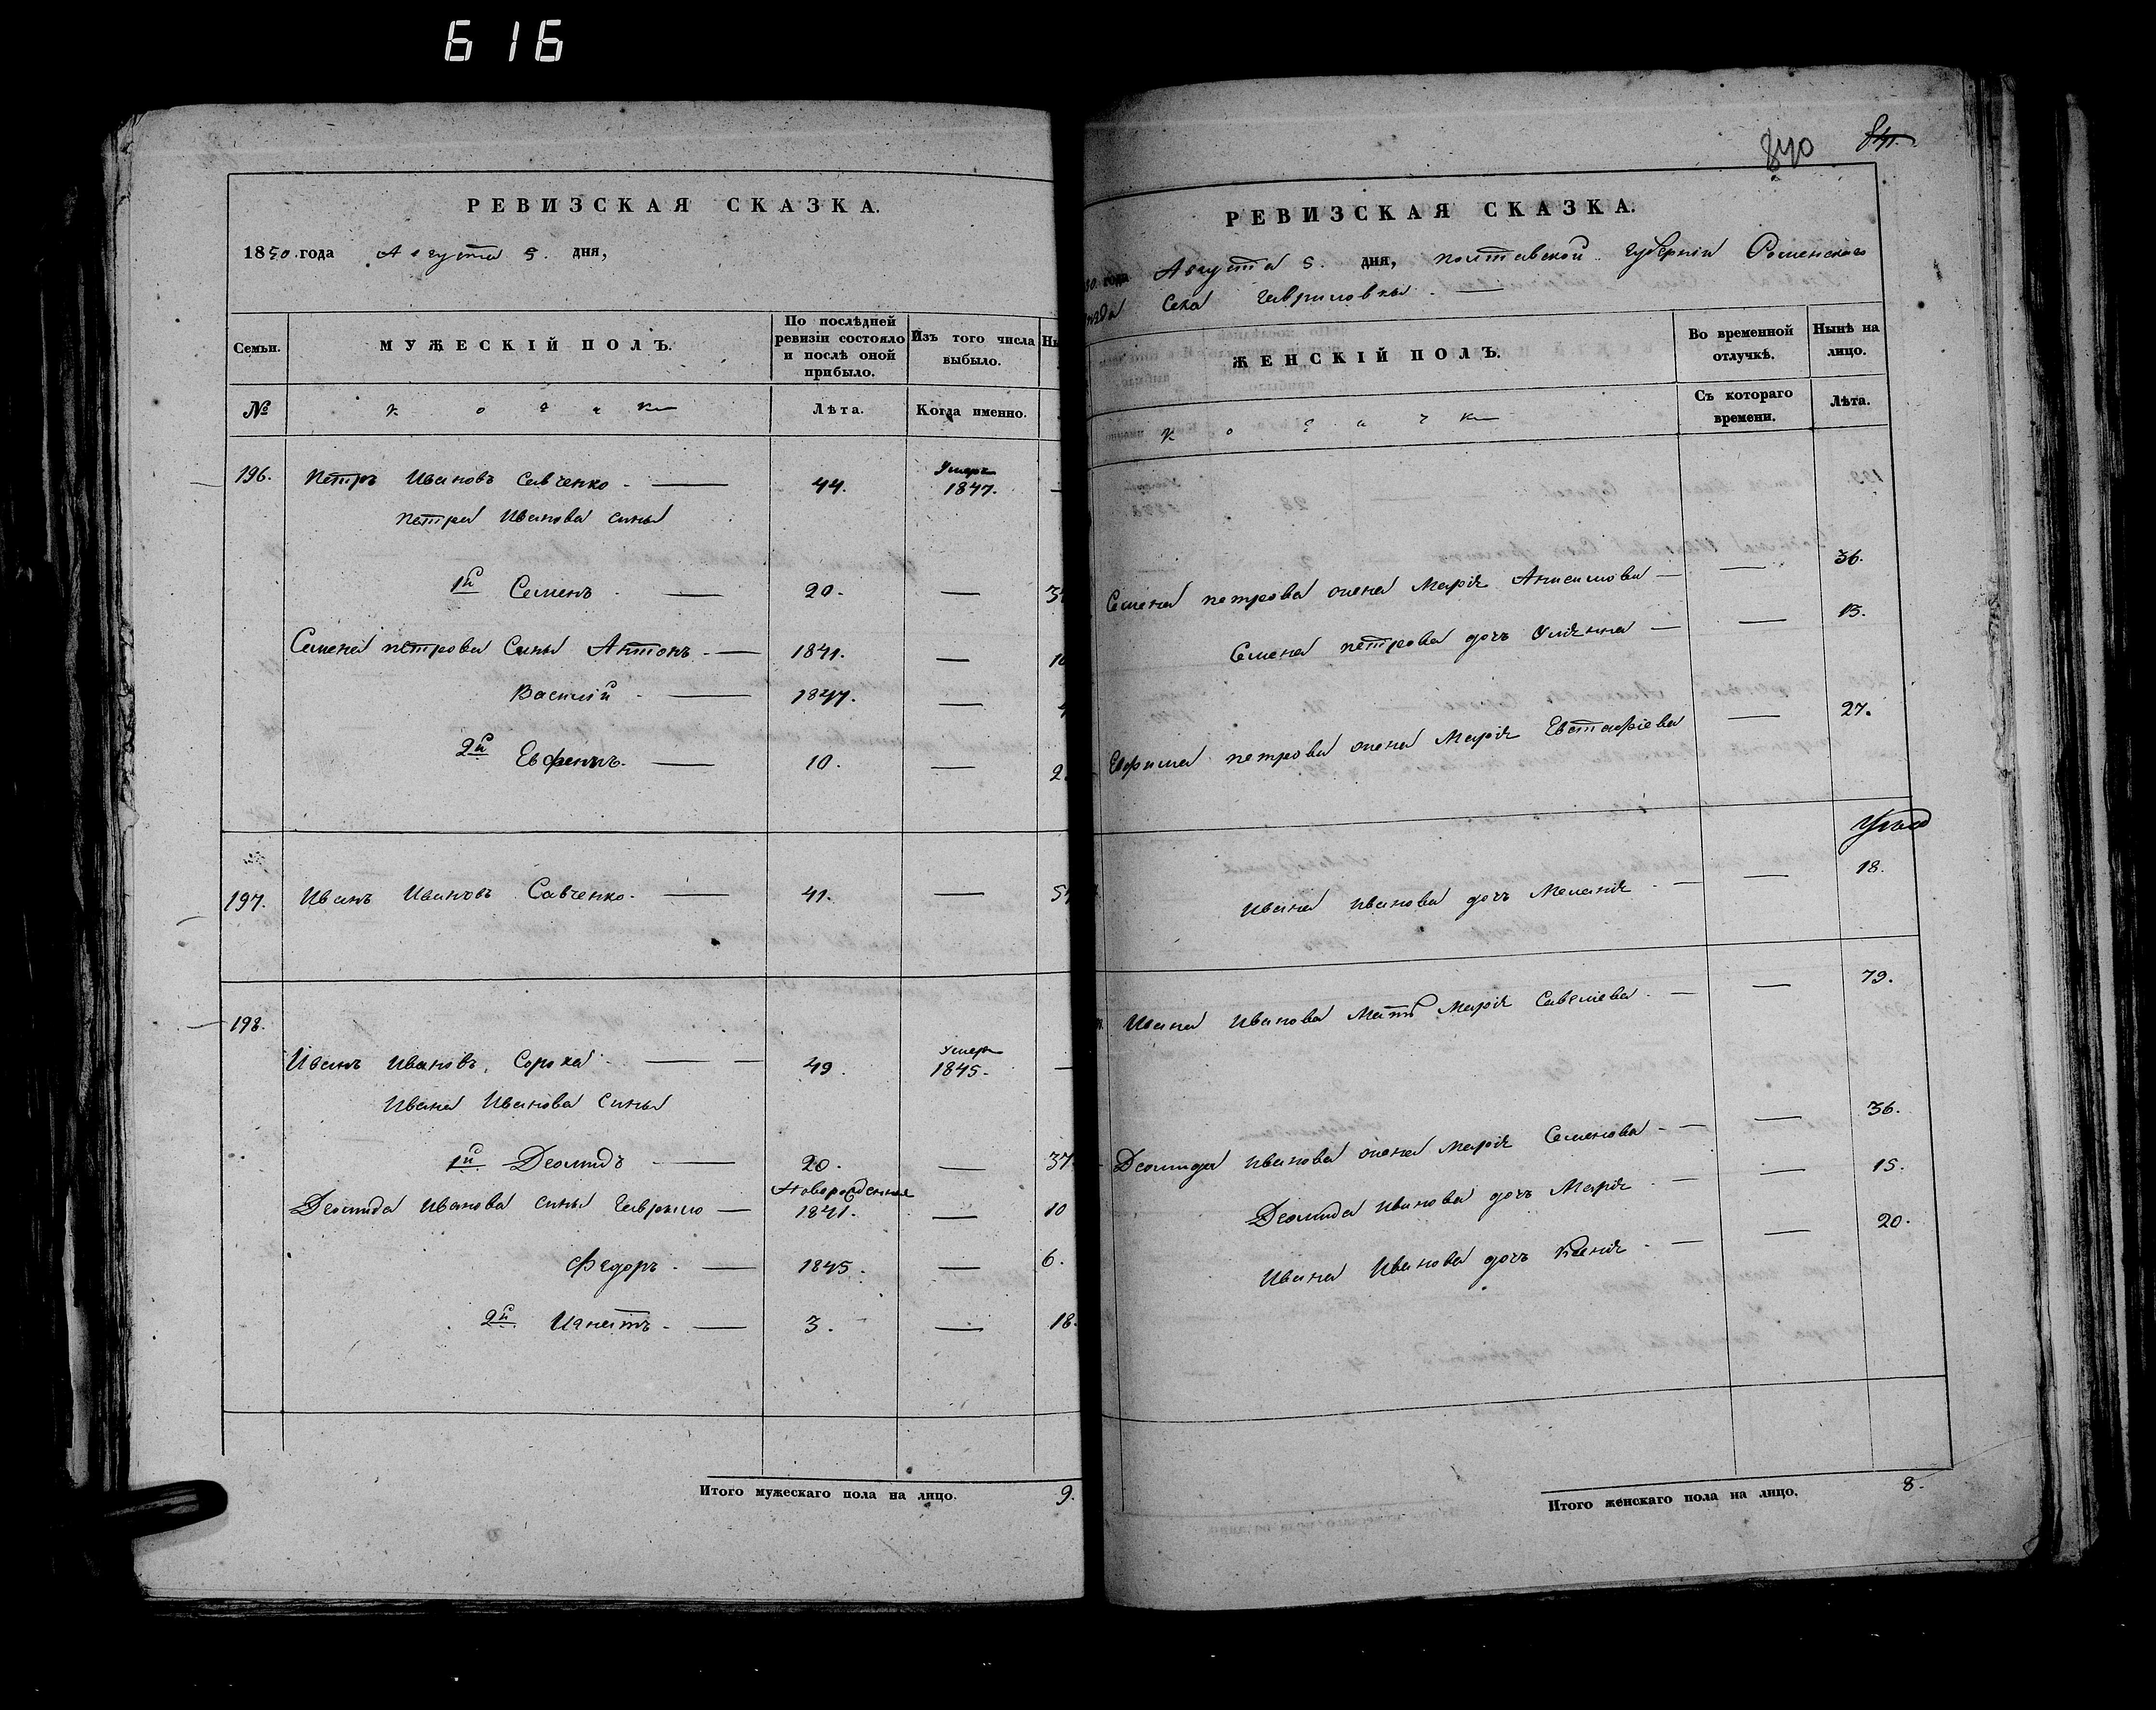 616
РЕВИЗСКАЯ СКАЗКА.
1850 года Августа 5. дня,
Семьи. МУЖЕСКІЙ ПОЛЪ. По послѣдней ревизіи состояло и послѣ оной прибыло. Изъ того числа выбыло.
№ козаки Лѣта. Когда именно.
196. Петръ Ивановъ Савченко - 44. Умеръ 1847.
Петра Иванова сыны
1й Семенъ - 20. —
Семена Петрова Сыны Антонъ - 1841. —
Василій - 1847. —
2й Евфимъ. 10. —
197. Иванъ Ивановъ Савченко. 41. —
198.
Иванъ Ивановъ Сорока 49. Умеръ 1845.
Ивана Иванова Сыны
1й Деомидъ 20. — 37
Деомида Иванова сыны Гаврыло — Новорожденные 1841. — 10
Федоръ - 1845. — 6.
2й Игнатъ - 3. — 18.
Итого мужескаго пола на лицо. 9.
840 841.
РЕВИЗСКАЯ СКАЗКА.
года Августа 5. дня, Полтавской Губерніи Роменскаго
Села Гавриловки. —
ЖЕНСКІЙ ПОЛЪ. Во временной отлучкѣ. Нынѣ на лицо.
козачки Съ котораго времени. Лѣта.
Семена Петрова жена Марія Анисимова — — 36.
Семена Петрова дочь Улянна — — 15.
Евфима Петрова жена Марія Евстафіева — 27.
Ивана Иванова дочь Меланія - — — 18.
Ивана Иванова Мать Марія Савелиева - — — 79.
Деомида Иванова жена Марія Семенова - — — 36.
Деомида Иванова дочь Марія - — — 15.
Ивана Иванова дочь - — — 20.
Итого женскаго пола на лицо. 8.